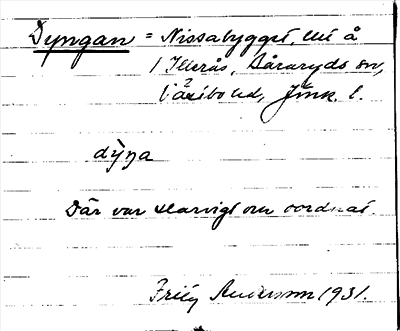 Dyngan = Nissabygget, litt å
/ Jllerås, Båraryds sn,
Västbo hd, Jönk. l.
dÿŋa
Där var slarvigt och oordnat.
Fritz Andersson 1931.